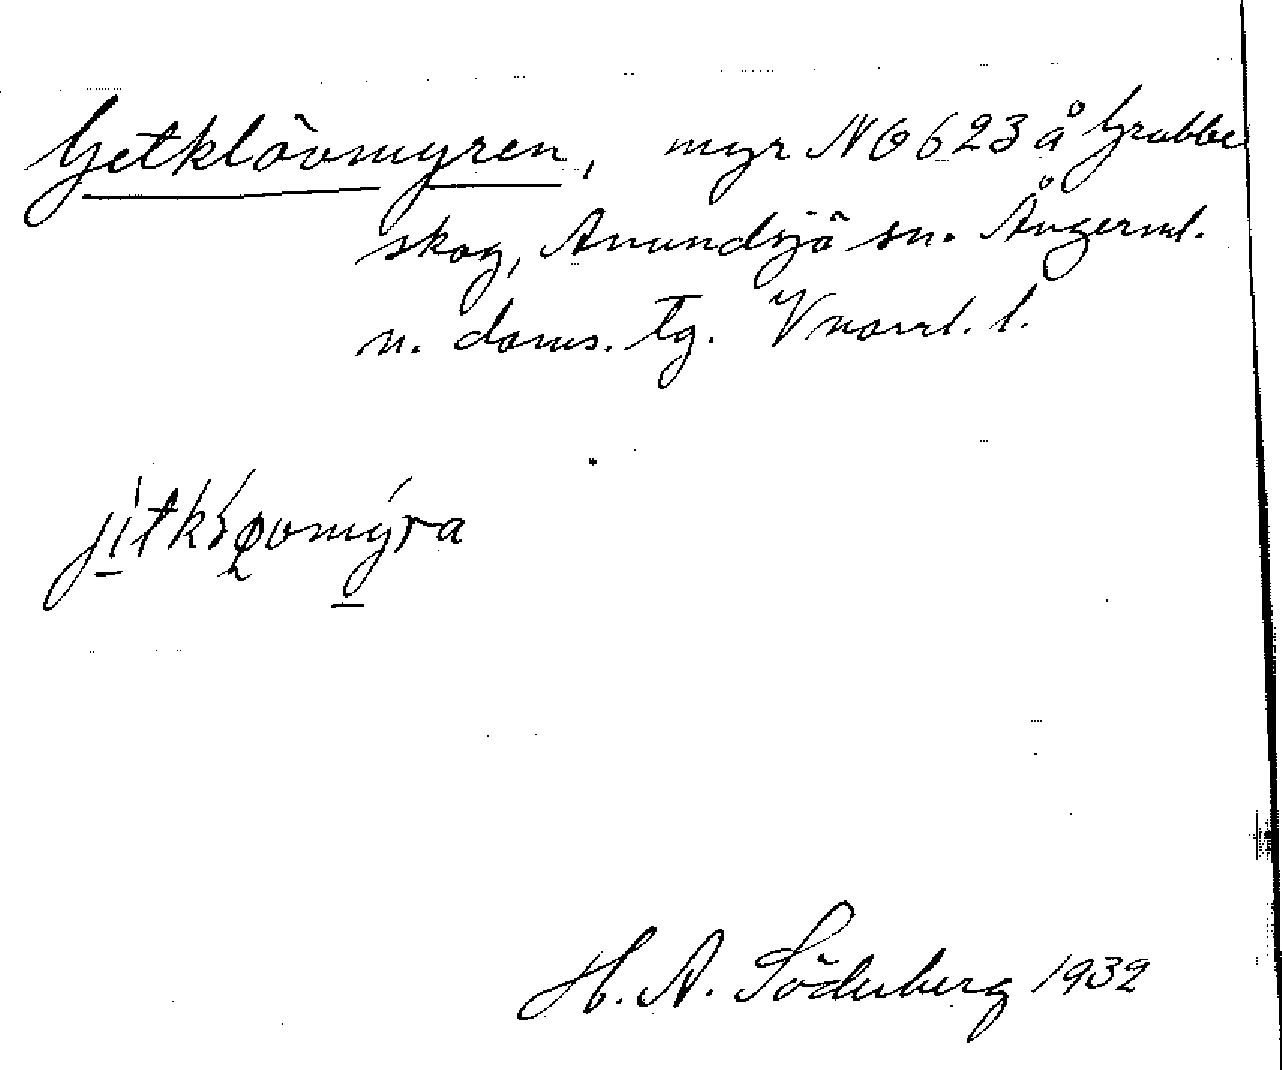 Getklövmyren, myr NO 623 å Grubbe
skog, Anundsjö sn. Ångerml.
n. doms. tg. Vnorrl. l.
H. A. Söderberg 1932